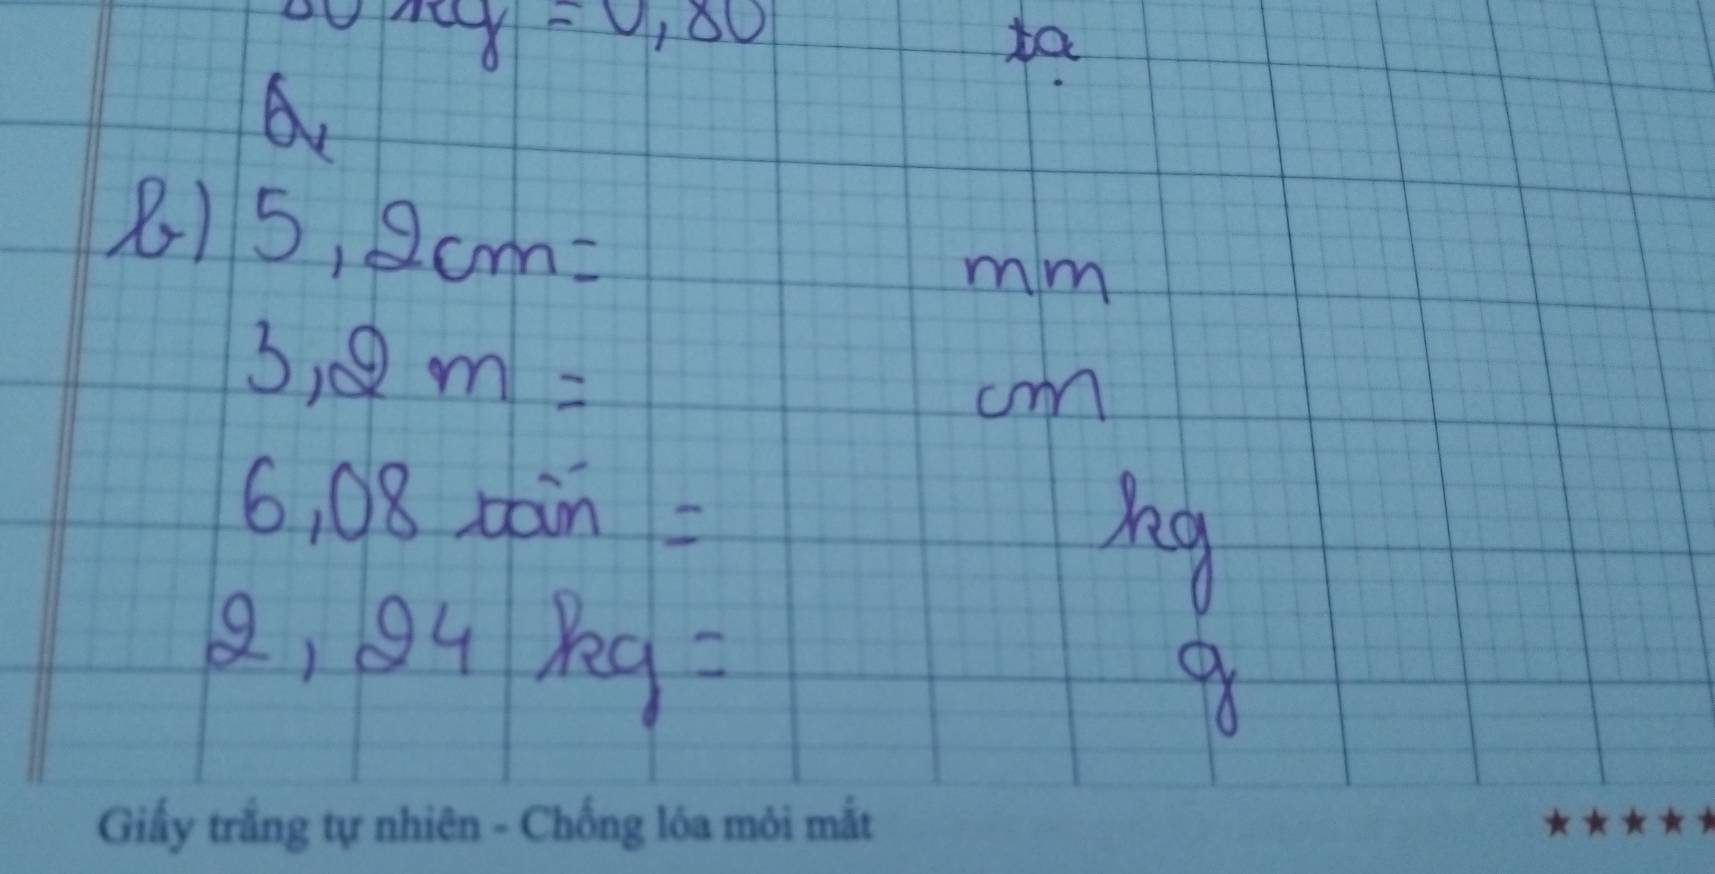 80 kg = 0,80 tạ
b) 5,2 cm = mm
3,2 m = cm
6,08 tấn = kg
2,24 kg = g
Giấy trắng tự nhiên - Chống lóa mỏi mắt